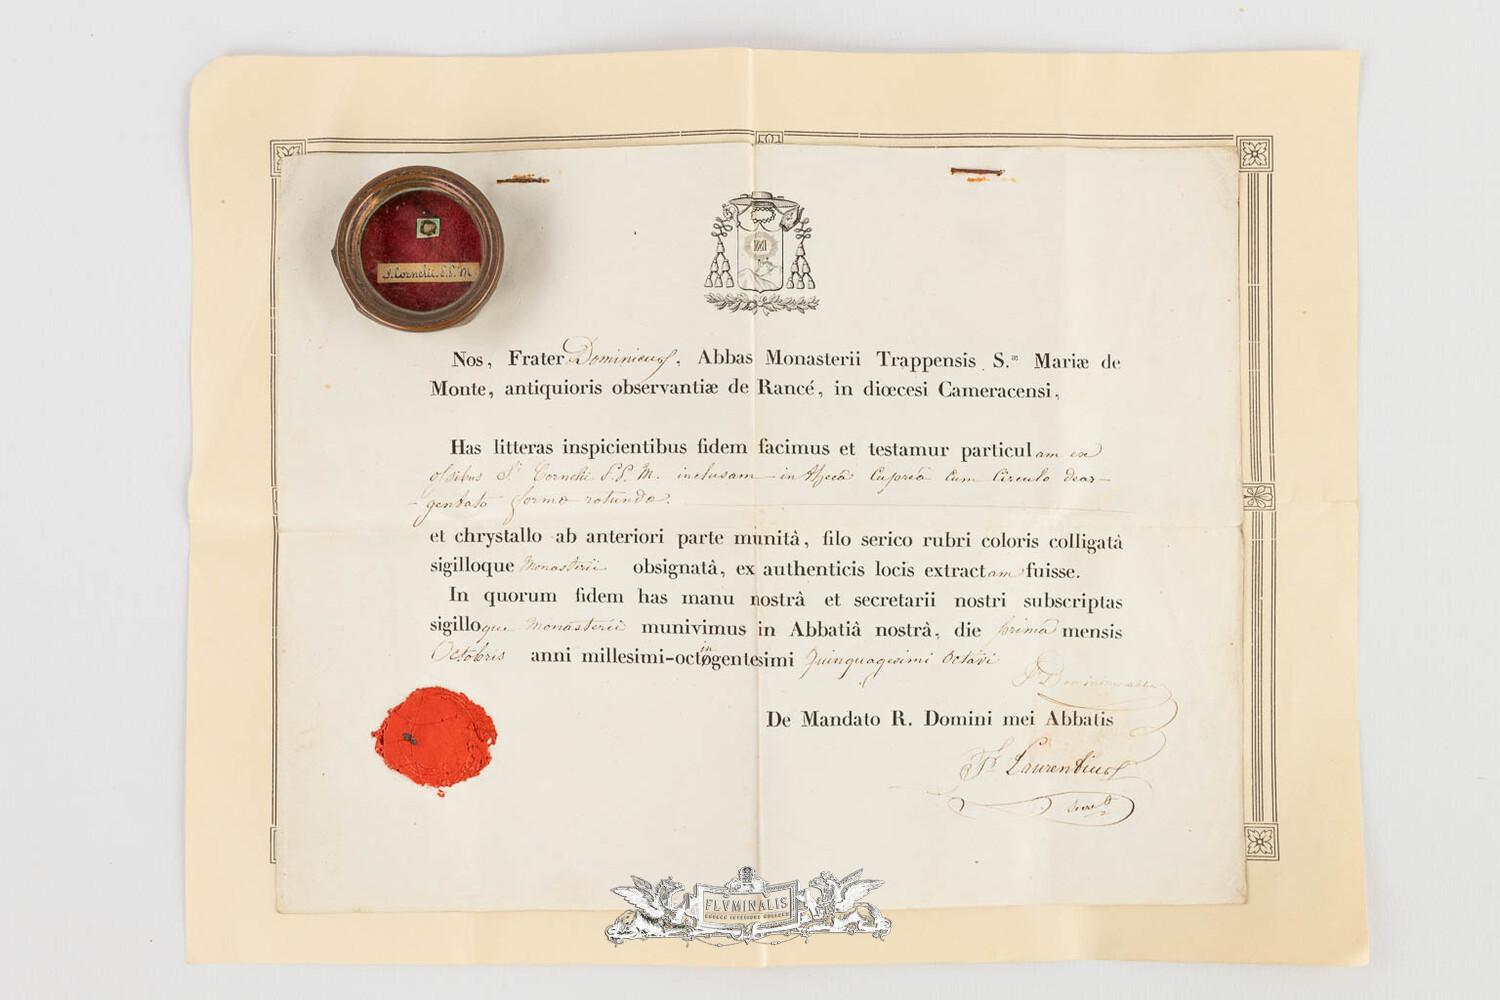 S. Cornelii. P. M
M
Nos, Frater Dominicus, Abbas Monasterii Trappensis S.æ Mariæ de
Monte, antiquioris observantiæ de Rancé, in diœcesi Cameracensi,
Has litteras inspicientibus fidem facimus et testamur particulam ex
ossibus Sti Cornelii P. M. inclusam in thecâ cupreâ cum circulo dear-
-gentato formæ rotundæ.
et chrystallo ab anteriori parte munitâ, filo serico rubri coloris colligatâ
sigilloque Monasterii obsignatâ, ex authenticis locis extractam fuisse.
In quorum fidem has manu nostrâ et secretarii nostri subscriptas
sigilloque Monasterii munivimus in Abbatiâ nostrâ, die primâ mensis
Octobris anni millesimi-octingentesimi quinquagesimi octavi
Dominicus abbas
De Mandato R. Domini mei Abbatis
Fr Laurentius
FLVMINALIS